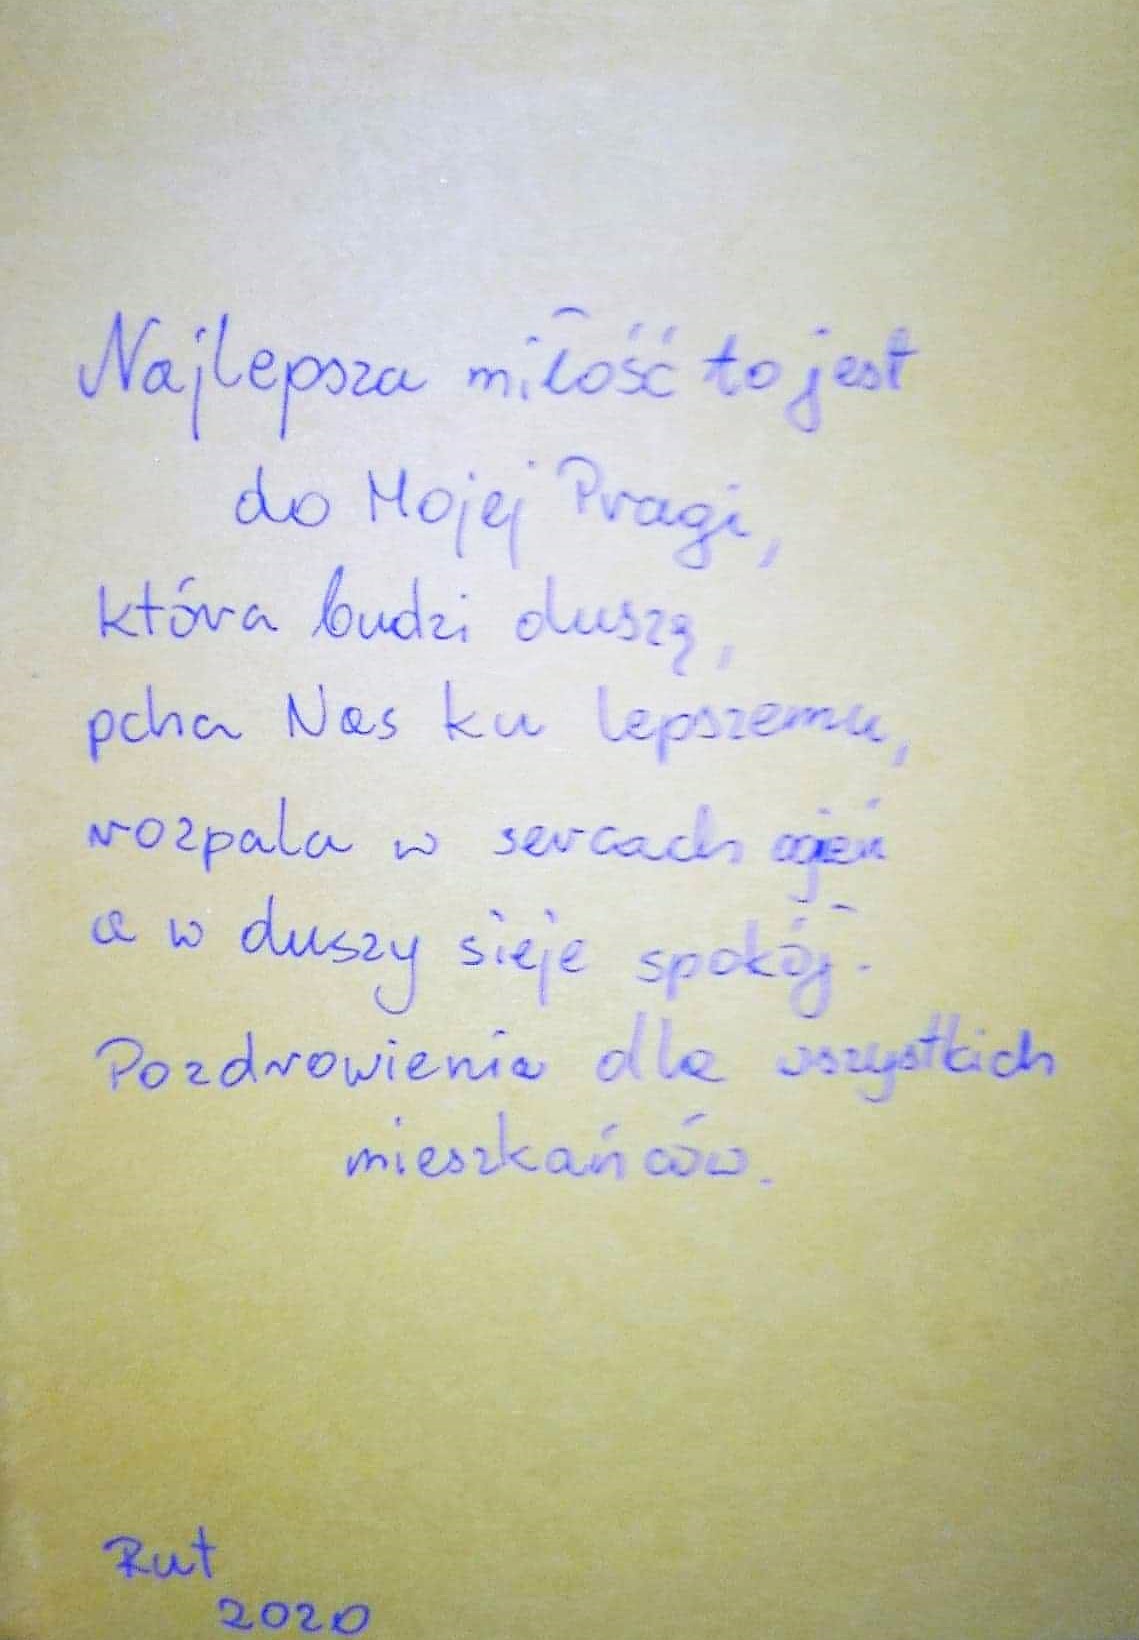 Najlepsza miłość to jest
do Mojej Pragi,
która budzi duszę,
pcha Nas ku lepszemu,
rozpala w sercach ogień
a w duszy sieje spokój.
Pozdrowienia dla wszystkich
mieszkańców.
Rut
2020